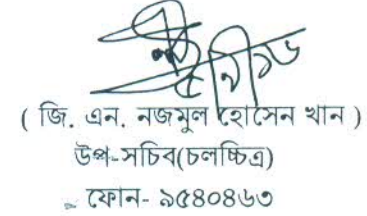 ( জি. এন. নজমুল হোসেন খান )
উপ-সচিব(চলচ্চিত্র)
ফোন- ৯৫৪০৪৬৩